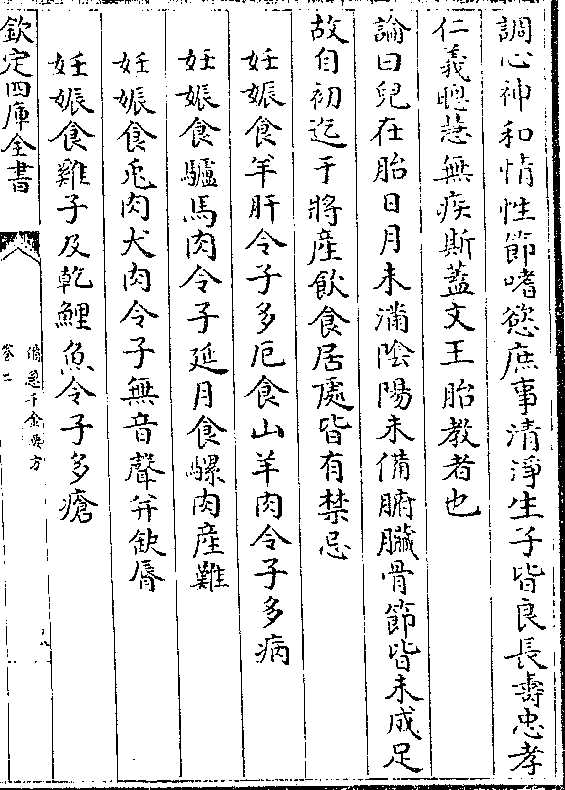 調心神和情性節嗜慾庶事清淨生子皆良長壽忠孝
仁義聰慧無疾斯蓋文王胎教者也
論曰兒在胎日月未滿陰陽未備腑臟骨節皆未成足
故自初迄于將產飲食居處皆有禁忌
妊娠食羊肝令子多厄食山羊肉令子多病
妊娠食驢馬肉令子延月食騾肉產難
妊娠食兎肉犬肉令子無音聲并欫脣
妊娠食雞子及乾鯉魚令子多瘡
欽定四庫全書
備急千金要方
卷二